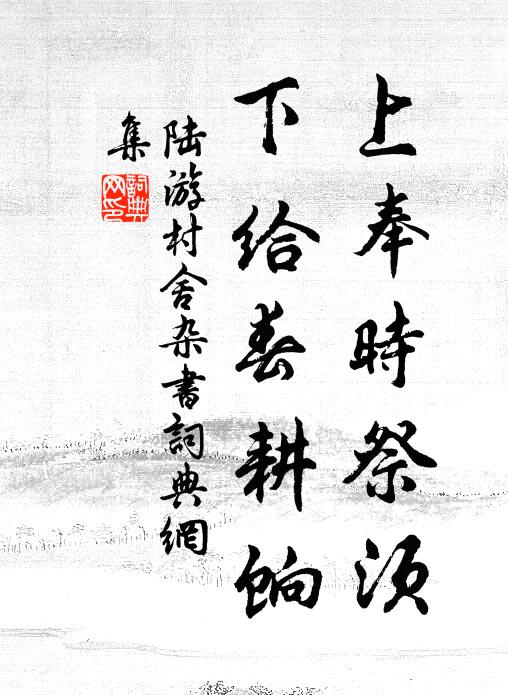 上奉時祭須
下給春耕餉
陆游村舍杂書詞典網
集
詞典
网印